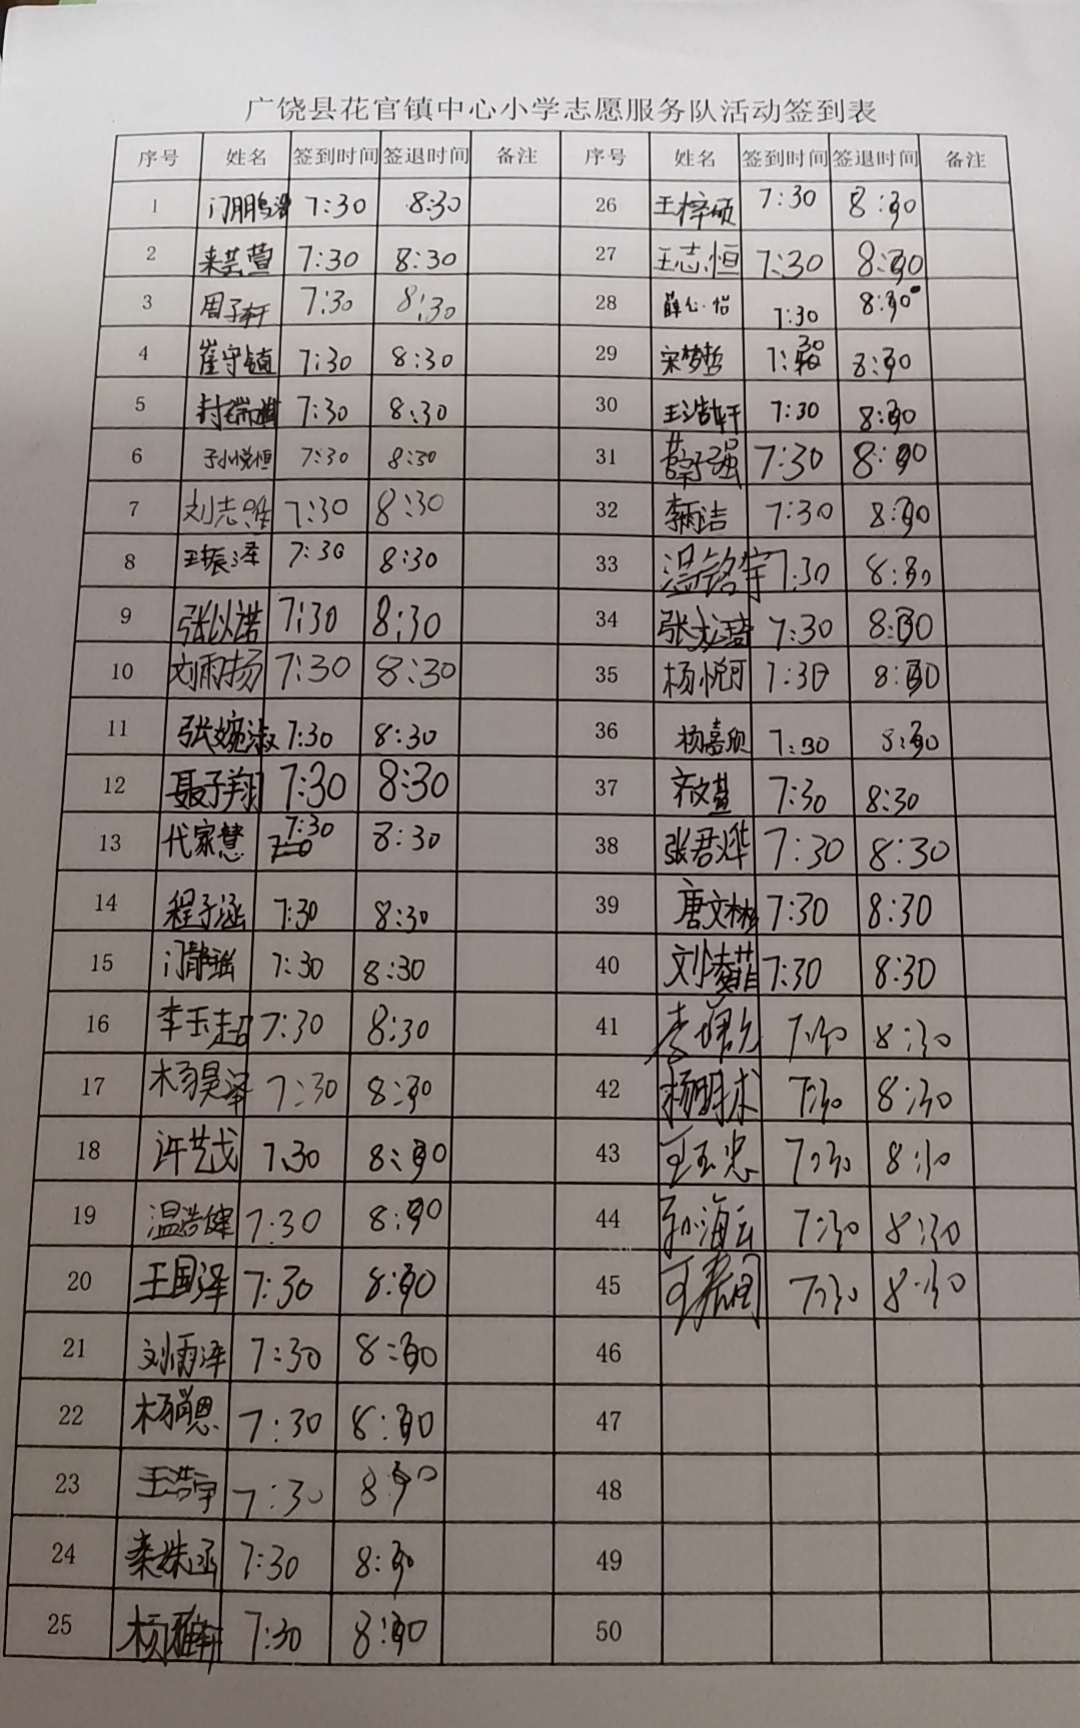 广饶县花官镇中心小学志愿服务队活动签到表
序号 姓名 签到时间 签退时间 备注 序号 姓名 签到时间 签退时间 备注
1 门鹏 7:30 8:30 26 王梓硕 7:30 8:30
2 来芸萱 7:30 8:30 27 王志恒 7:30 8:30
3 周子轩 7:30 8:30 28 薛心怡 7:30 8:30
4 崔守镇 7:30 8:30 29 宋梦哲 7:30 8:30
5 封瑞 7:30 8:30 30 王浩轩 7:30 8:30
6 孙悦恒 7:30 8:30 31 薛子强 7:30 8:30
7 刘志 7:30 8:30 32 李洁 7:30 8:30
8 王振泽 7:30 8:30 33 温铭宇 7:30 8:30
9 张以诺 7:30 8:30 34 张龙琦 7:30 8:30
10 刘雨扬 7:30 8:30 35 杨悦可 7:30 8:30
11 张婉淑 7:30 8:30 36 杨嘉欣 7:30 8:30
12 聂子翔 7:30 8:30 37 齐文 7:30 8:30
13 代家慧 7:30 8:30 38 张君烨 7:30 8:30
14 程子涵 7:30 8:30 39 唐文彬 7:30 8:30
15 门静瑶 7:30 8:30 40 刘凌菲 7:30 8:30
16 李玉超 7:30 8:30 41 李 7:30 8:30
17 杨昊泽 7:30 8:30 42 杨明术 7:30 8:30
18 许艺戈 7:30 8:30 43 王玉忠 7:30 8:30
19 温浩健 7:30 8:30 44 孙海云 7:30 8:30
20 王国泽 7:30 8:30 45 王 7:30 8:30
21 刘雨泽 7:30 8:30 46
22 杨尚恩 7:30 8:30 47
23 王浩宇 7:30 8:30 48
24 栾姝函 7:30 8:30 49
25 杨雅轩 7:30 8:30 50